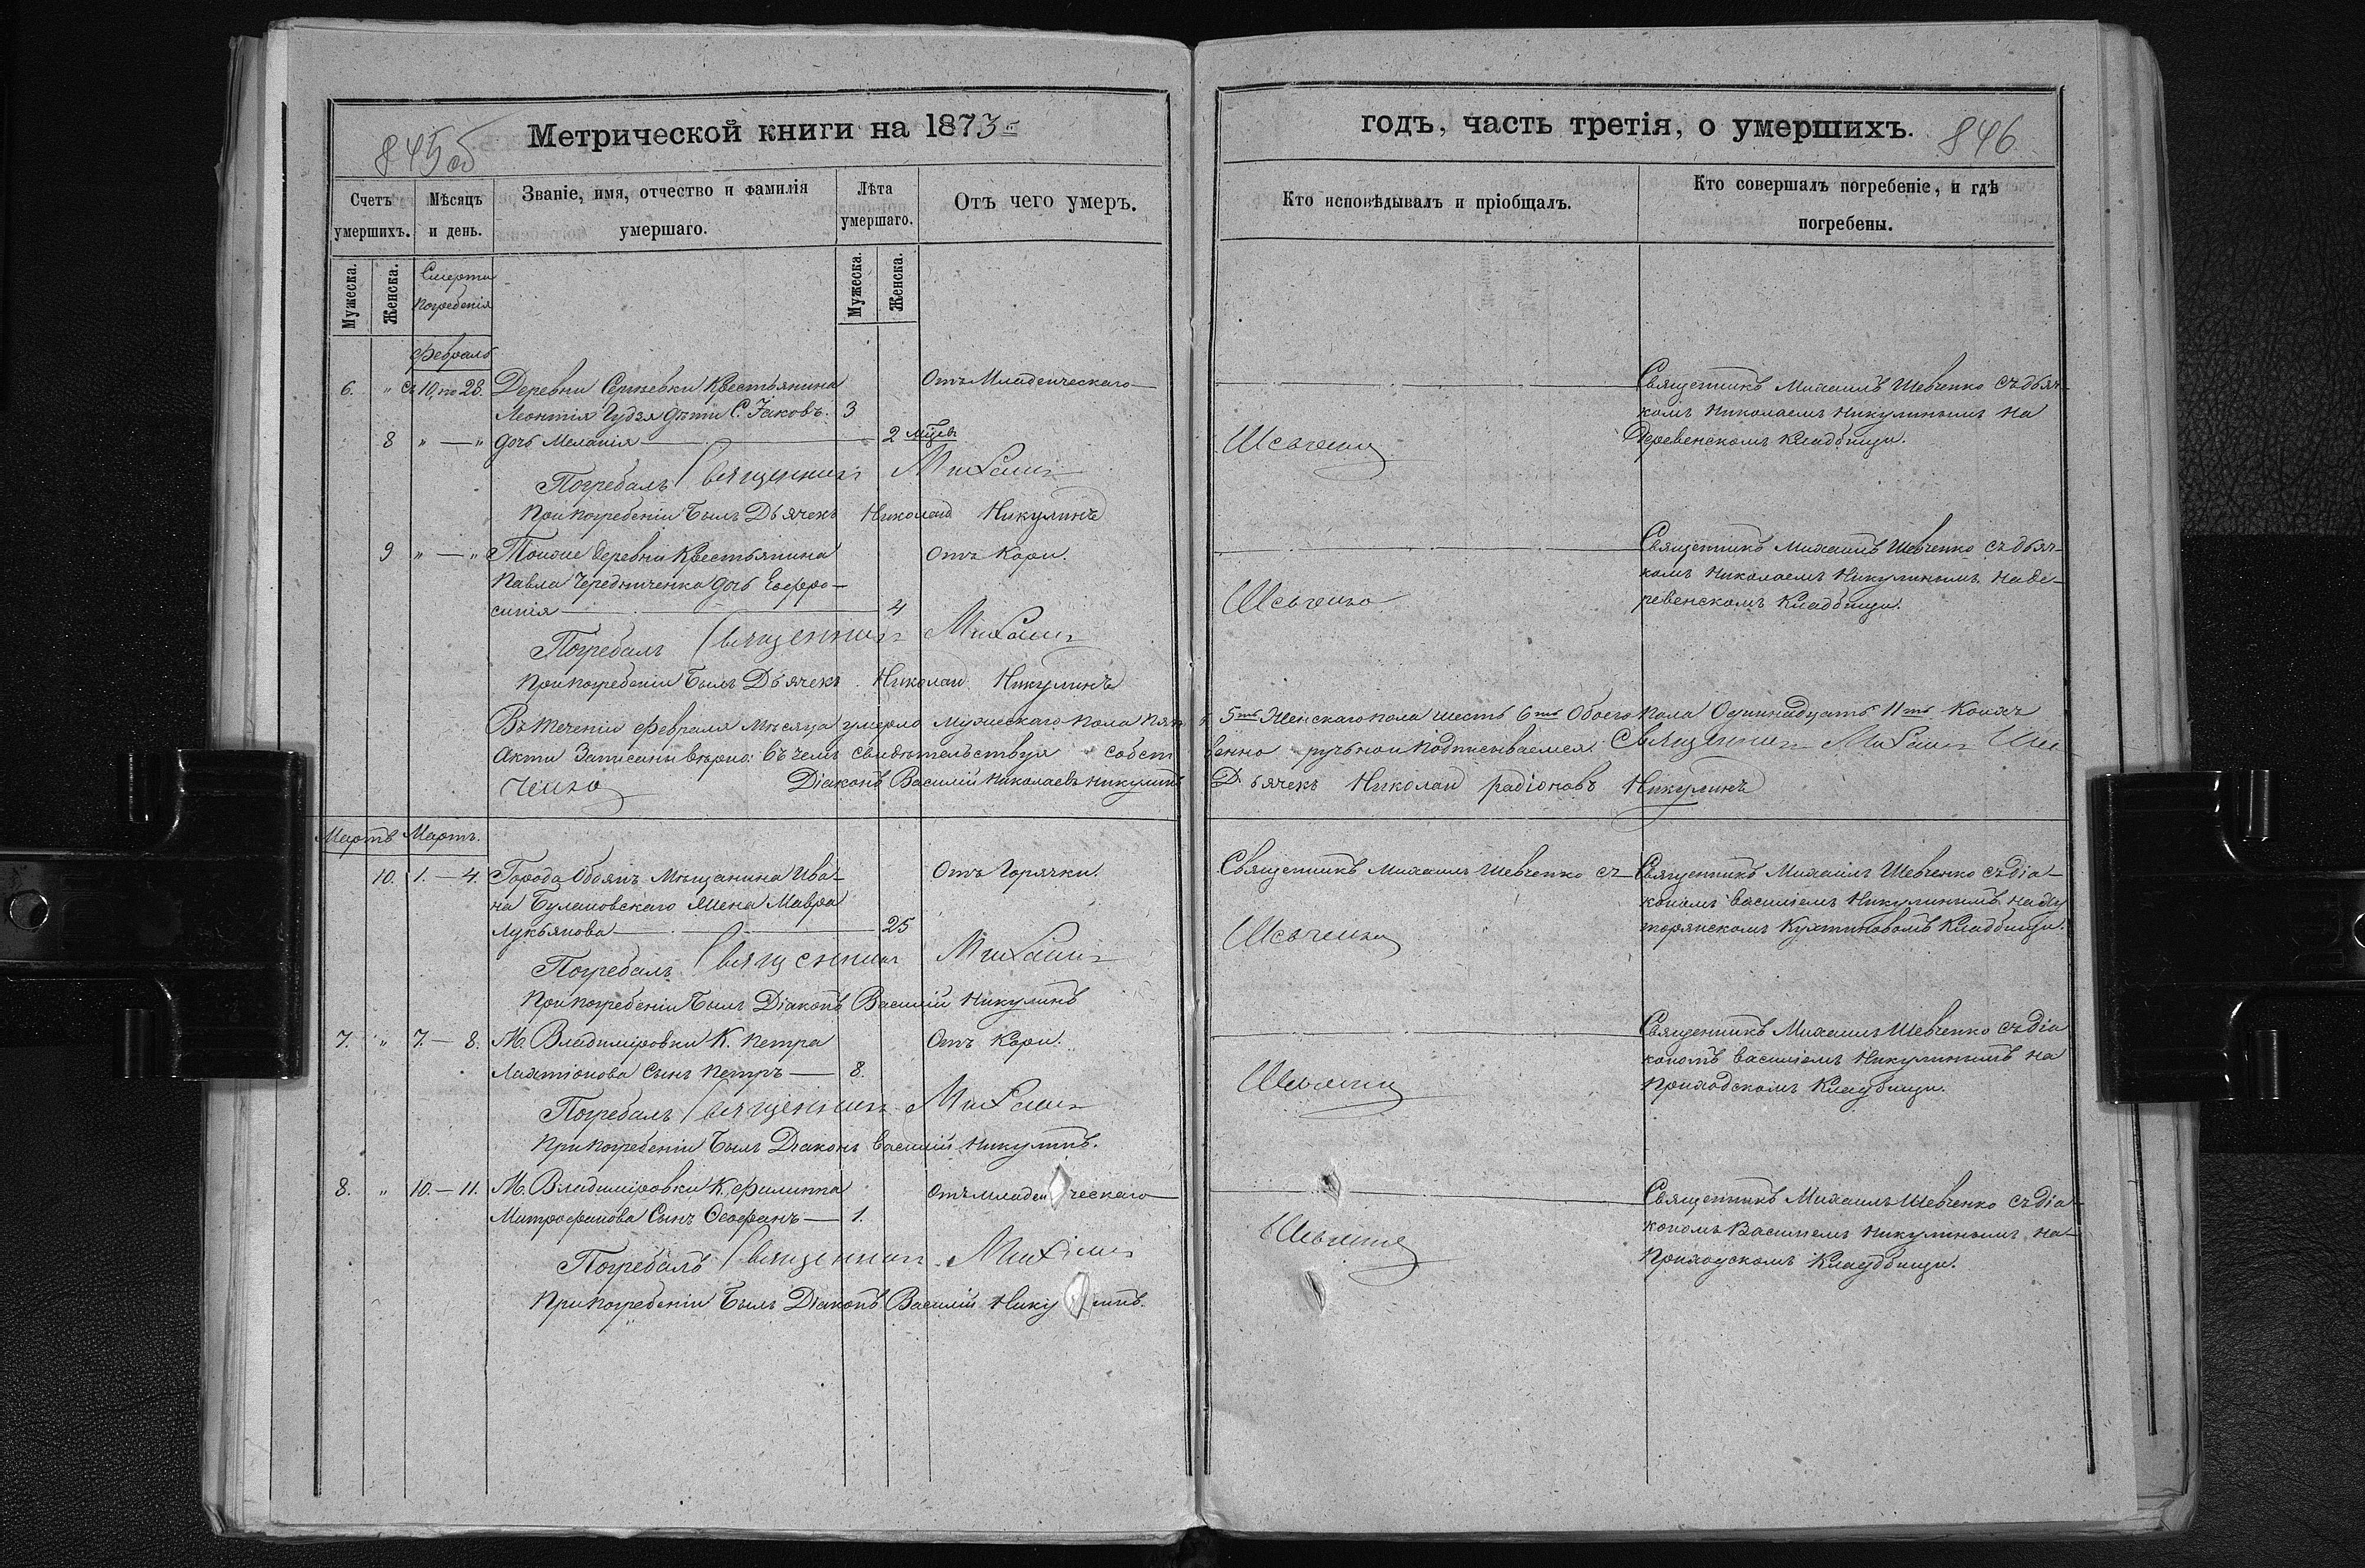 845 об
Метрической книги на 1873 й
Счетъ умершихъ.
Мѣсяцъ и день.
Званіе, имя, отчество и фамилія умершаго.
Лѣта умершаго.
Отъ чего умеръ.
Мужеска.
Женска.
Смерти
Погребенія
Мужеска.
Женска.
Февраль
6. " Съ 10, по 28. Деревни Сергѣевки Крестьянина Отъ Младенческаго
Леонтія Гудзя дѣти С. Іаковъ. 3
8 " — " дочь Меланія — 2 мѣсяц
Погребалъ Священникъ Михаилъ
При погребеніи былъ Дьячекъ Николай Никулинъ
9 " — " Тойже деревни Крестьянина Отъ Кори.
Павла Чередниченка дочь Евфро-
синія — 4
Погребалъ Священникъ Михаилъ
При погребеніи былъ Дьячекъ Николай Никулинъ
Въ теченіи Февраля мѣсяца умерло мужескаго пола пять
Акти записаны вѣрно: въ чемъ свидѣтельствуя собст
ченко Діаконъ Василій Николаевъ Никулинъ
Мартъ Мартъ.
10. 1. — 4. Города Обоянь Мѣщанина Ива- Отъ Горячки.
на Булановскаго жена Мавра
Лукьянова — 25
Погребалъ Священникъ Михаилъ
При погребеніи былъ Діаконъ Василій Никулинъ
7. " 7. — 8. М. Владиміровки К. Петра Отъ Кори.
Сынъ Петръ — 8.
Погребалъ Священникъ Михаилъ
При погребеніи былъ Діаконъ Василій Никулинъ.
8. " 10. — 11. М. Владиміровки К. Филиппа Отъ младенческаго
Митрофанова Сынъ Ѳеофанъ — 1.
Погребалъ Священникъ Михаилъ
При погребеніи былъ Діаконъ Василій Никулинъ.
годъ, часть третія, о умершихъ.
846
Кто исповѣдывалъ и пріобщалъ.
Кто совершалъ погребеніе, и гдѣ погребены.
Священникъ Михаилъ Шевченко съ дьяч-
комъ Николаемъ Никулинымъ на
Деревенскомъ Кладбищи.
Шевченко
Священникъ Михаилъ Шевченко съ дьяч-
комъ Николаемъ Никулинымъ на де-
ревенскомъ Кладбищи.
Шевченко
5ть Женскаго пола шесть 6ть Обоего пола Одинадцать 11ть Коихъ
венно ручьной Подписываемся: Священникъ Михаилъ Шев
Дьячекъ Николай радіоновъ Никулинъ
Священникъ Михаилъ Шевченко съ —
Священникъ Михаилъ Шевченко съ діа-
кономъ Василіемъ Никулинымъ на ху
торянскомъ Кладбищи.
Шевченко
Священникъ Михаилъ Шевченко съ діа
кономъ Василіемъ Никулинымъ на
Приходскомъ Кладбищи.
Шевченко
Священникъ Михаилъ Шевченко съ діа
кономъ Василіемъ Никулинымъ на
Приходскомъ Кладбищи.
Шевченко